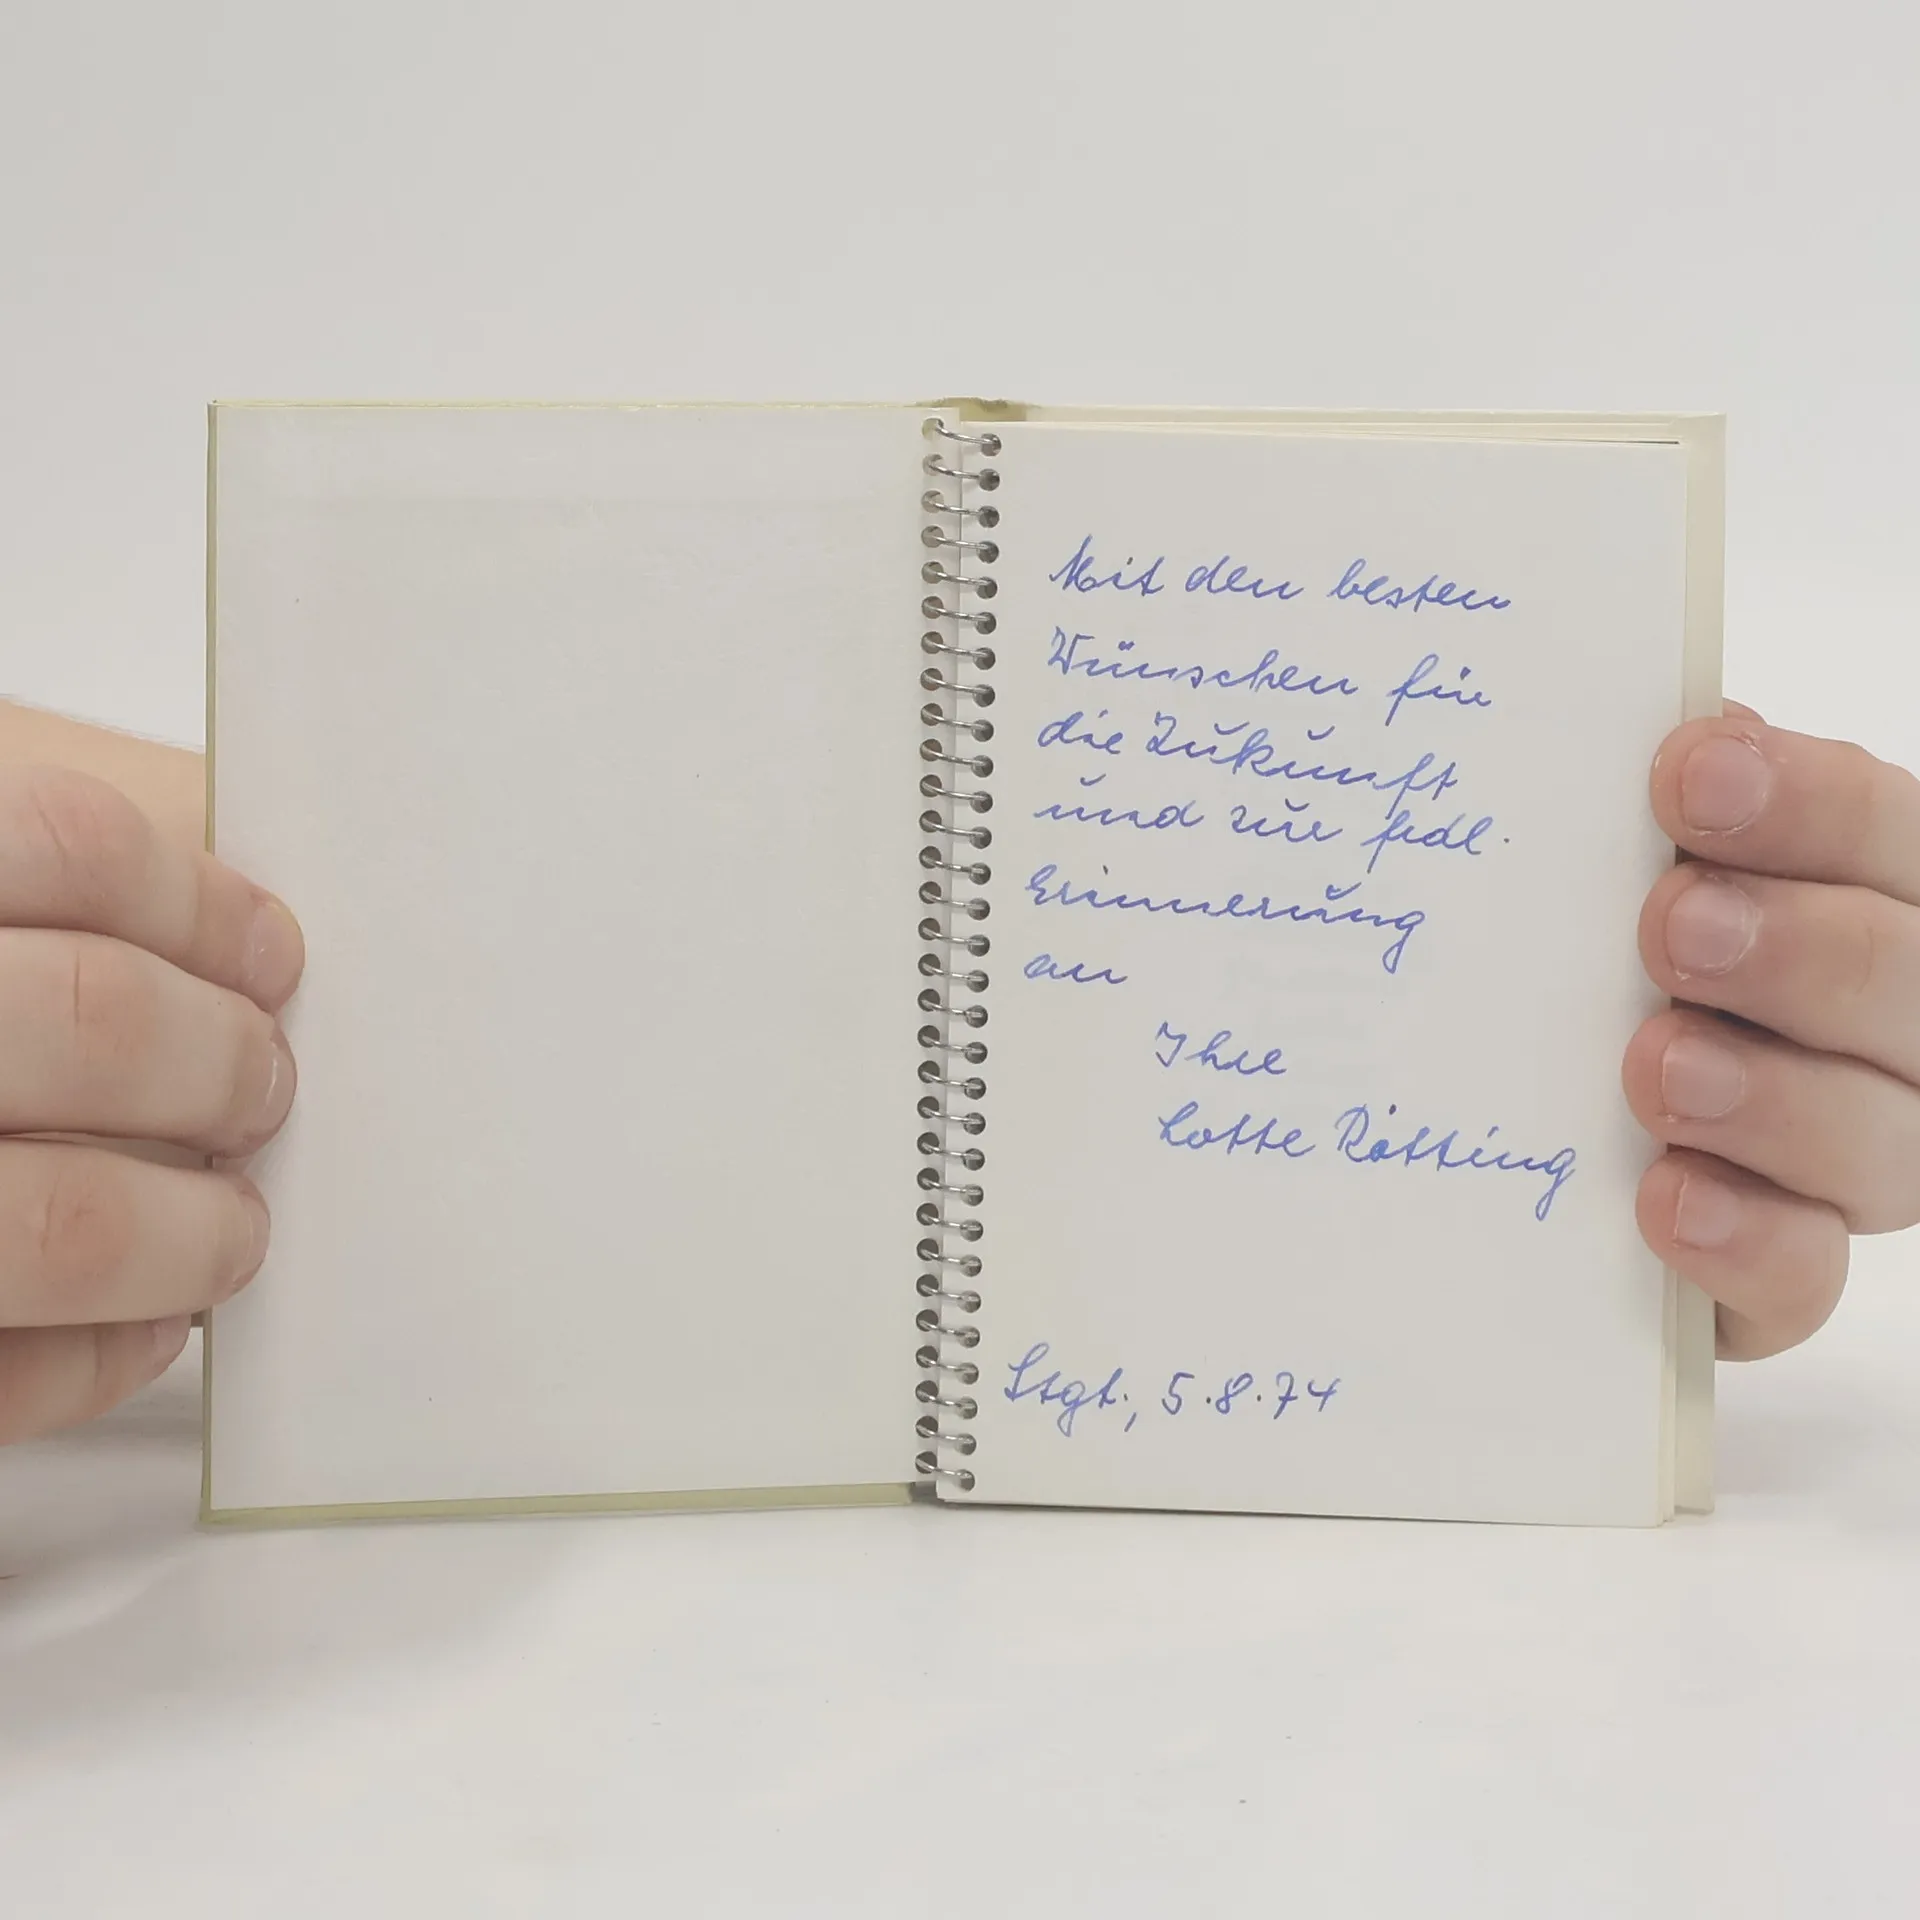 Mit den besten
Wünschen für
die Zukunft
und zur frdl.
Erinnerung
an
Ihre
Lotte Rötting
Stgt., 5.8.74